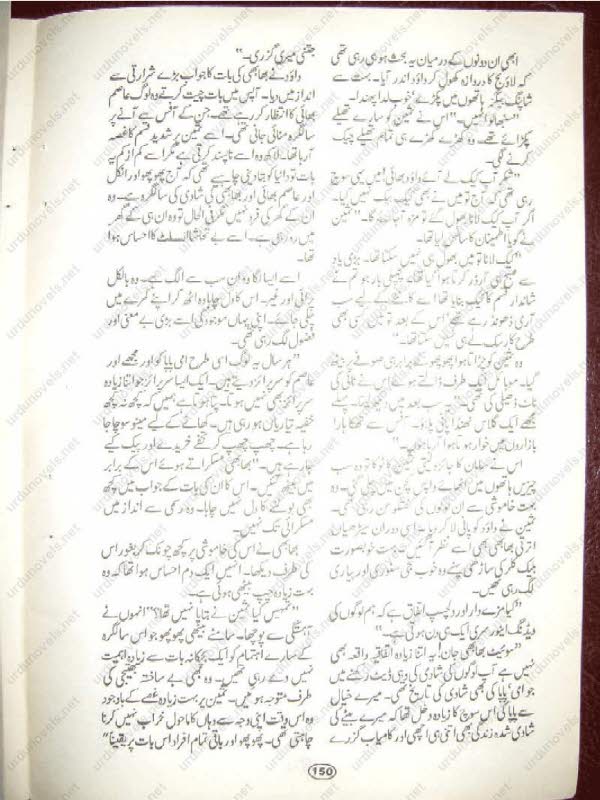 ابھی ان دونوں کے درمیان یہ بحث ہو ہی رہی تھی
کہ لاؤنج کا دروازہ کھول کر داؤد اندر آیا۔ بہت سے
شاپنگ بیگز ہاتھوں میں پکڑے خوب لدا پھندا۔
"سنبھالو انہیں۔" اس نے ثمین کو سارے تھیلے
پکڑائے تھے۔ وہ کھڑے کھڑے ہی تمام تھیلے چیک
کرنے لگی۔
"شکر آپ کیک لے آئے داؤد بھائی! میں یہی سوچ
رہی تھی کہ آج تو میں نے بھی کیک بیک نہیں کیا۔
اگر آپ کیک لانا بھول گئے تو مزہ آ جائے گا۔" ثمین
نے گویا اطمینان کا سانس لیا تھا۔
"کیک لانا تو میں بھول ہی نہیں سکتا تھا۔ بڑی یاد
سے صبح ہی آرڈر کرتا ہوا گیا تھا۔ پچھلی بار جو تم نے
شاندار قسم کا کیک بنایا تھا اسے کاٹنے کے لیے سب
آری ڈھونڈ رہے تھے اس کے بعد تو میں کسی بھی
طرح کا رسک لے ہی نہیں سکتا تھا۔"
وہ ثمین کو چڑاتا ہوا پھوپھو کے برابر ہی صوفے پر بیٹھ
گیا۔ موبائل ایک طرف ڈالتے ہوئے اس نے ٹائی کی
ناٹ ڈھیلی کی تھی۔ "یہ سب بعد میں دیکھنا۔ پہلے
مجھے ایک گلاس ٹھنڈا پانی پلاؤ۔ آفس سے تھکا ہارا
بازاروں میں خوار ہوتا ہوا آ رہا ہوں۔"
اس نے سامان کا جائزہ لیتی ثمین کو ٹوکا تو وہ سب
چیزیں ہاتھوں میں اٹھائے واپس کچن میں چلی گئی۔ وہ
بہت خاموشی سے ان لوگوں کی گفتگو سن رہی تھی۔
ثمین نے داؤد کو پانی لا کر دیا۔ اسی دوران سیڑھیاں
اترتی بھابھی بھی اسے نظر آ گئیں۔ بہت خوبصورت
بلیک کلر کی ساڑھی پہنے وہ خوب سجی سنوری اور پیاری
لگ رہی تھیں۔
"کیا مزے دار اور دلچسپ اتفاق ہے کہ ہم لوگوں کی
ویڈنگ اینورسری ایک ہی دن ہوتی ہے۔"
"سوئیٹ بھابھی جان! یہ اتنا زیادہ اتفاقیہ واقعہ بھی
نہیں ہے آپ لوگوں کی شادی کی وہی ڈیٹ رکھنے میں
جو امی پاپا کی بھی شادی کی تاریخ تھی۔ میرے خیال
سے پاپا کی اس سوچ کا زیادہ دخل تھا کہ میرے بیٹے کی
شادی شدہ زندگی بھی اتنی ہی اچھی اور کامیاب گزرے
جتنی میری گزری۔"
داؤد نے بھابھی کی بات کا جواب بڑے شرارتی سے
انداز میں دیا۔ آپس میں بات چیت کرتے وہ لوگ عاصم
بھائی کا انتظار کر رہے تھے۔ جن کے آفس سے آنے پر
سالگرہ منائی جانی تھی۔ اسے ثمین پر شدید قسم کا غصہ
آ رہا تھا۔ لاکھ وہ اسے ناپسند کرتی ہے مگر اسے کم از کم یہ
بات تو بتا کر جانا دینی چاہیے تھی کہ آج پھوپھو اور انکل
اور عاصم بھائی اور بھابھی کی شادی کی سالگرہ ہے۔ وہ
ان کے گھر کی فرد نہیں مگر فی الحال تو وہ ان ہی کے گھر
میں رہ رہی ہے۔ اسے بے تحاشا انسلٹ کا احساس ہوا
تھا۔
اسے ایسا لگا وہ ان سب سے الگ ہے۔ وہ بالکل
پرائی اور غیر۔ اس کا دل چاہا وہ اٹھ کر اپنے کمرے میں
چلی جائے۔ اپنی یہاں موجودگی اسے بڑی بے معنی اور
فضول لگ رہی تھی۔
"ہر سال یہ لوگ اسی طرح امی پاپا کو اور مجھے اور
عاصم کو سرپرائز دیتے ہیں۔ ایک ایسا سرپرائز جو اتنا زیادہ
سرپرائز بھی نہیں ہوتا۔ پتا ہوتا ہے ہمیں کہ کچھ نہ کچھ
خفیہ تیاریاں ہو رہی ہیں۔ کھانے کے لیے مینو سوچا جا
رہا ہے۔ چھپ چھپ کر تحفے خریدے اور پیک کیے
جا رہے ہیں۔" بھابھی مسکراتے ہوئے اس کے برابر
میں بیٹھ گئیں۔ اس کا ان کی بات کے جواب میں کچھ
بھی بولنے کا دل نہیں چاہا۔ وہ رسمی سے انداز میں
مسکرائی تک نہیں۔
بھابھی نے اس کی خاموشی پر کچھ چونک کر بغور اس
کی طرف دیکھا۔ انہیں ایک دم احساس ہوا تھا کہ وہ
بہت زیادہ چپ بیٹھی ہوئی ہے۔
"تمہیں کیا ثمین نے بتایا نہیں تھا؟" انہوں نے
آہستگی سے پوچھا۔ سامنے بیٹھی پھوپھو جو اس سالگرہ
کے سارے اہتمام کو ایک بچکانہ بات سے زیادہ اہمیت
نہیں دے رہی تھیں۔ وہ بھی بے ساختہ بھتیجی کی
طرف متوجہ ہوئیں۔ ثمین پر بہت زیادہ غصے کے باوجود
وہ اس وقت اپنی وجہ سے وہاں کا ماحول خراب نہیں کرنا
چاہتی تھی۔ پھوپھو اور باقی تمام افراد اس بات پر یقیناً"
150
urdunovels.net